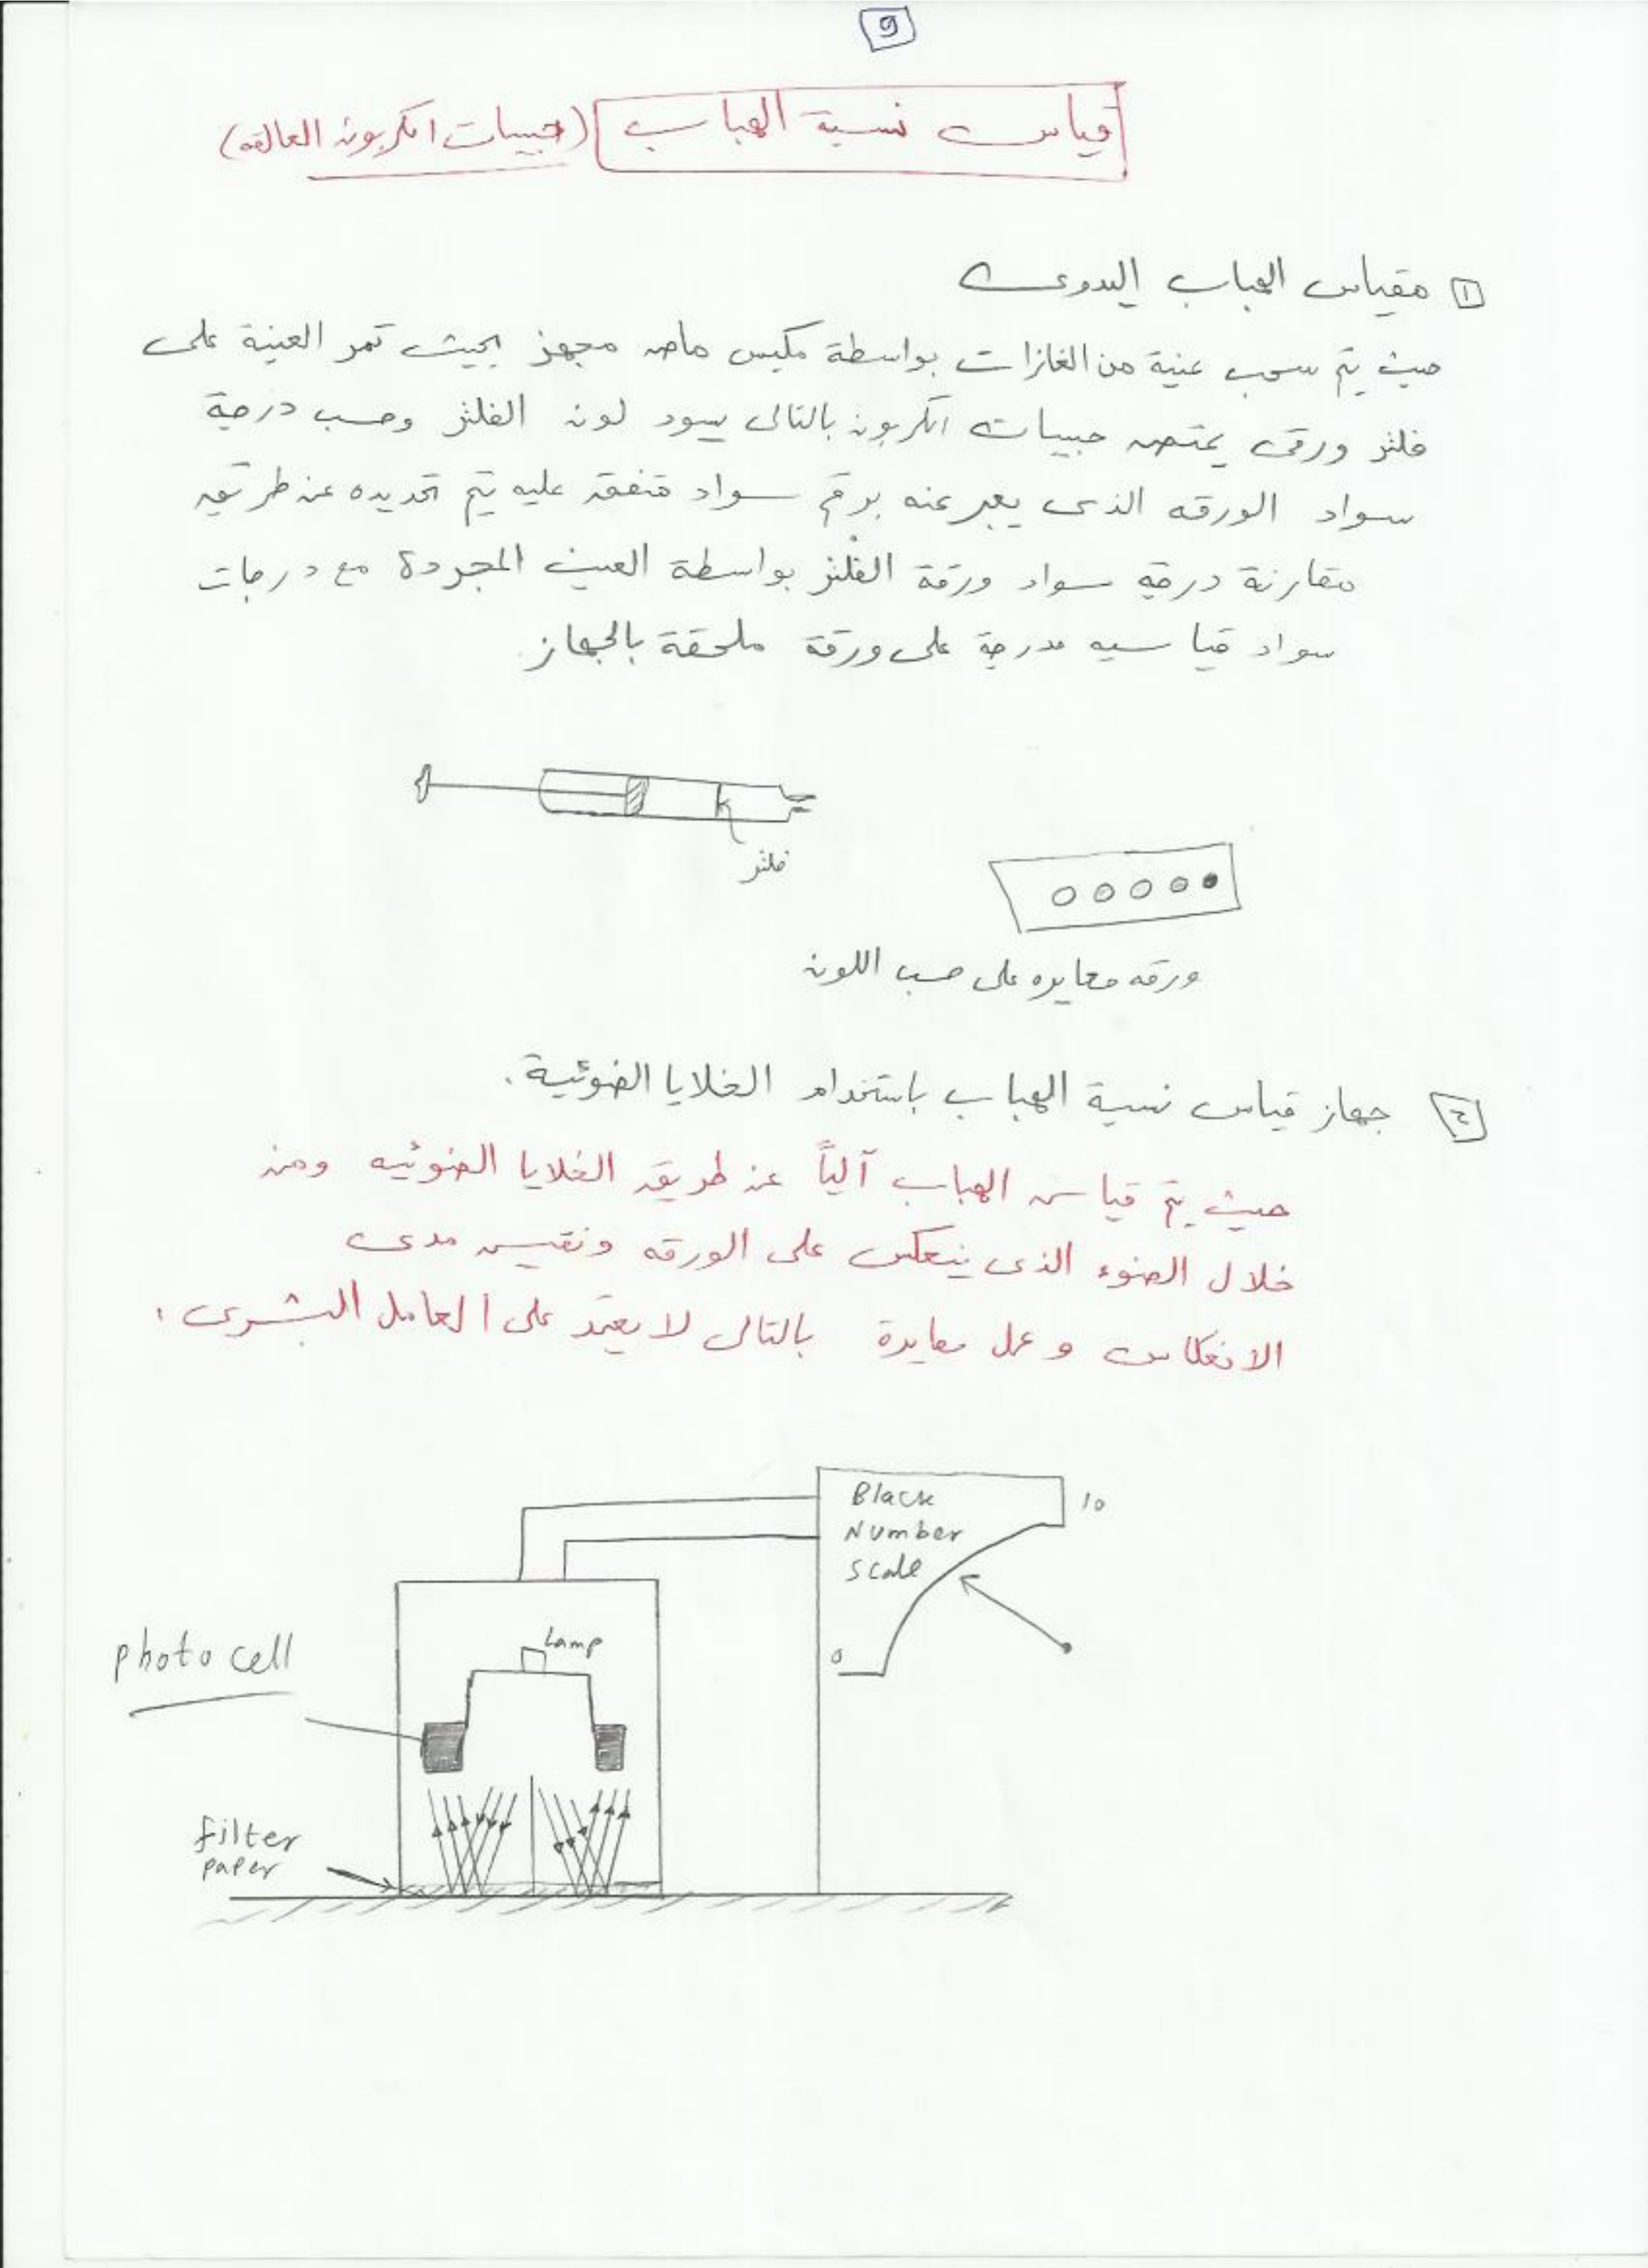 9
قياس نسبة الهباب (حبيبات الكربون العالقه)
1 مقياس الهباب اليدوى
حيث يتم سحب عينة من الغازات بواسطة مكبس ماص مجهز بحيث تمر العينة على
فلتر ورقى يمتص حبيبات الكربون بالتالى يسود لون الفلتر وحسب درجة
سواد الورقه الذى يعبر عنه برقم سواد متفق عليه يتم تحديده عن طريق
مقارنة درجة سواد ورقة الفلتر بواسطة العين المجردة مع درجات
سواد قياسيه مدرجة على ورقة ملحقة بالجهاز.
فلتر
ورقه معايره على حسب اللون
2 جهاز قياس نسبة الهباب باستخدام الخلايا الضوئية.
حيث يتم قياس الهباب آلياً عن طريق الخلايا الضوئيه ومن
خلال الضوء الذى ينعكس على الورقه ونقيس مدى
الانعكاس وعمل معايرة بالتالى لا يعتمد على العامل البشرى.
Black
10
Number
Scale
0
Lamp
photo cell
filter
paper